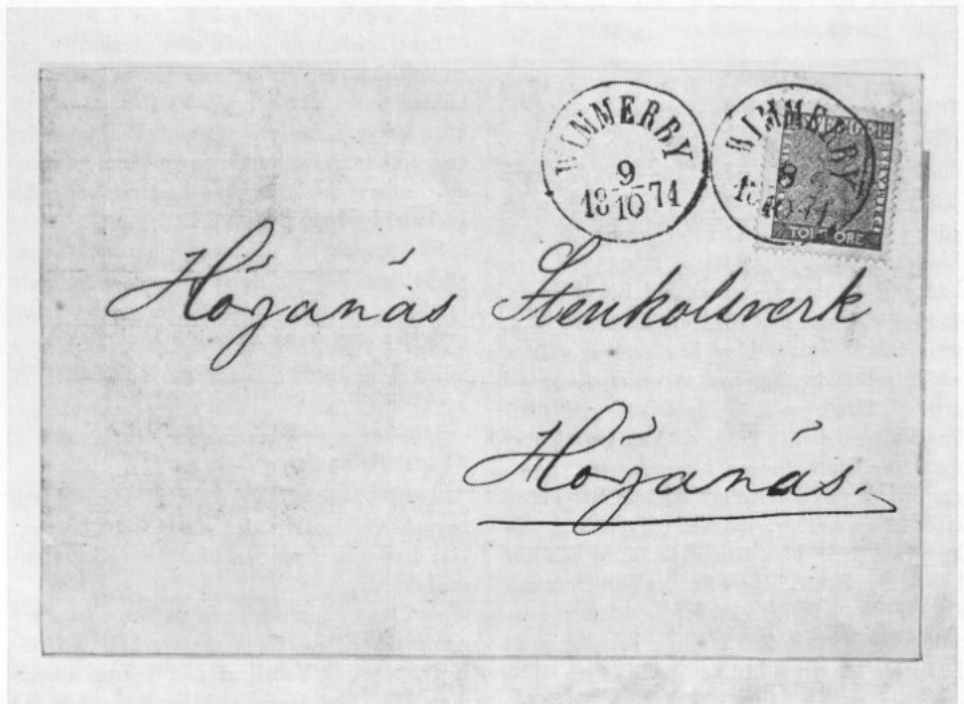 WIMMERBY
9
18 10 71
WIMMERBY
8
18 10 71
SVERIGE
TOLF ÖRE
Höganäs Stenkolsverk
Höganäs.